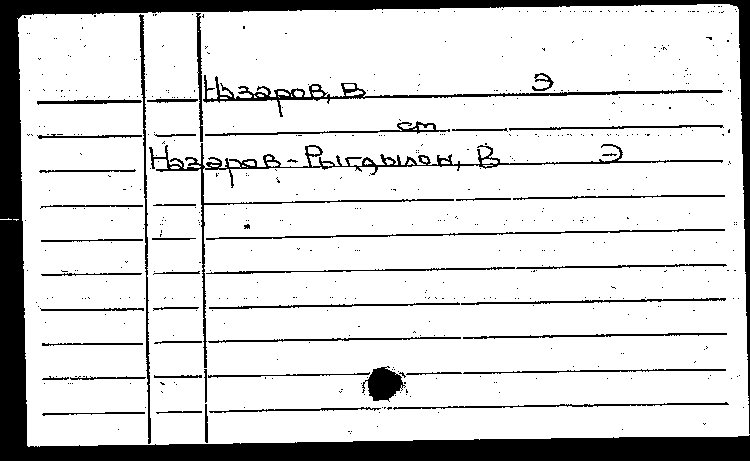 Назаров, В Э
ст
Назаров-Рындылон, В Э